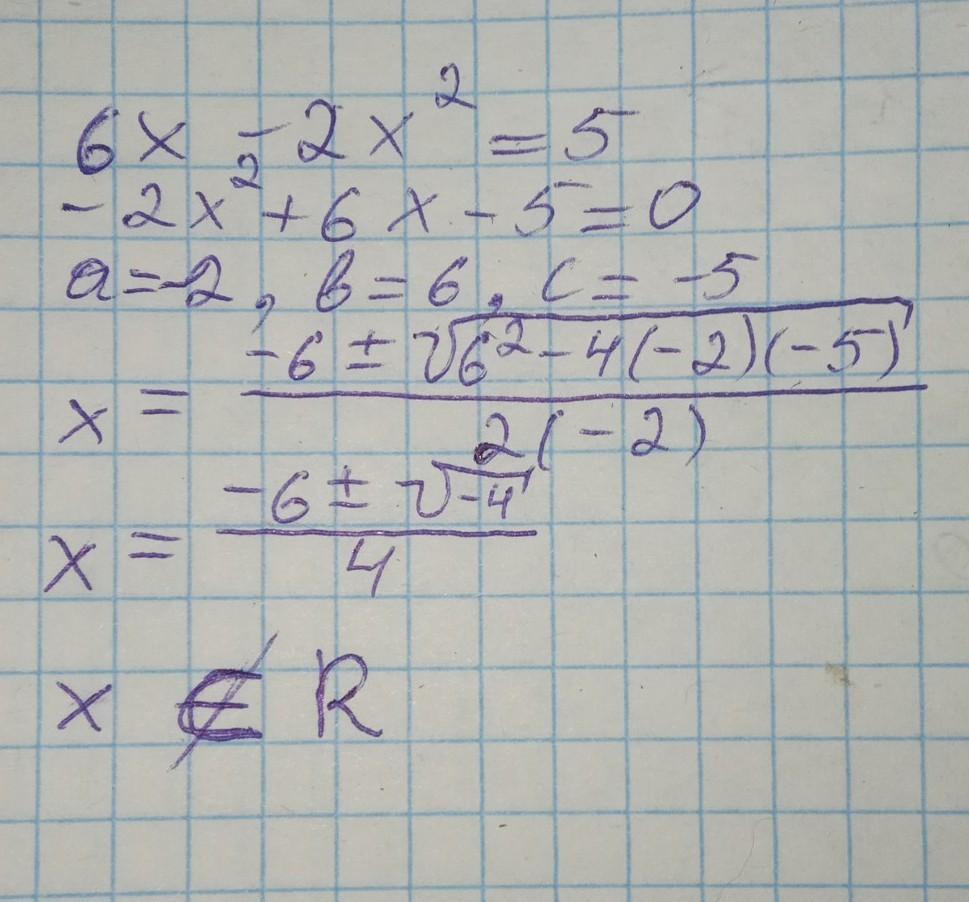 6x - 2x² = 5
-2x² + 6x - 5 = 0
a = -2, b = 6, c = -5
x = (-6 ± √(6² - 4(-2)(-5))) / (2(-2))
x = (-6 ± √(-4)) / 4
x ∉ R